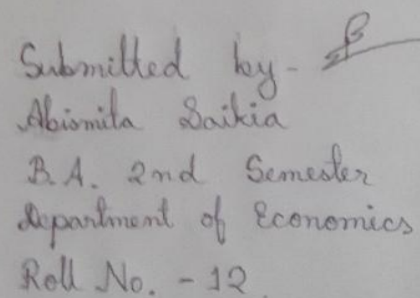 Submitted by -
Abismita Saikia
B.A. 2nd Semester
Department of Economics
Roll No. - 12